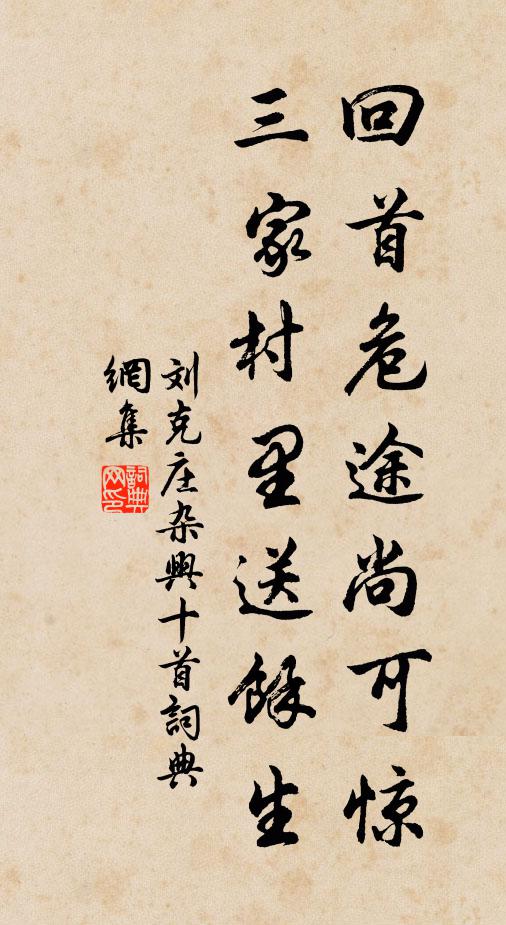 回首危途尚可惊
三家村里送餘生
刘克庄杂興十首詞典
網集
詞典网印